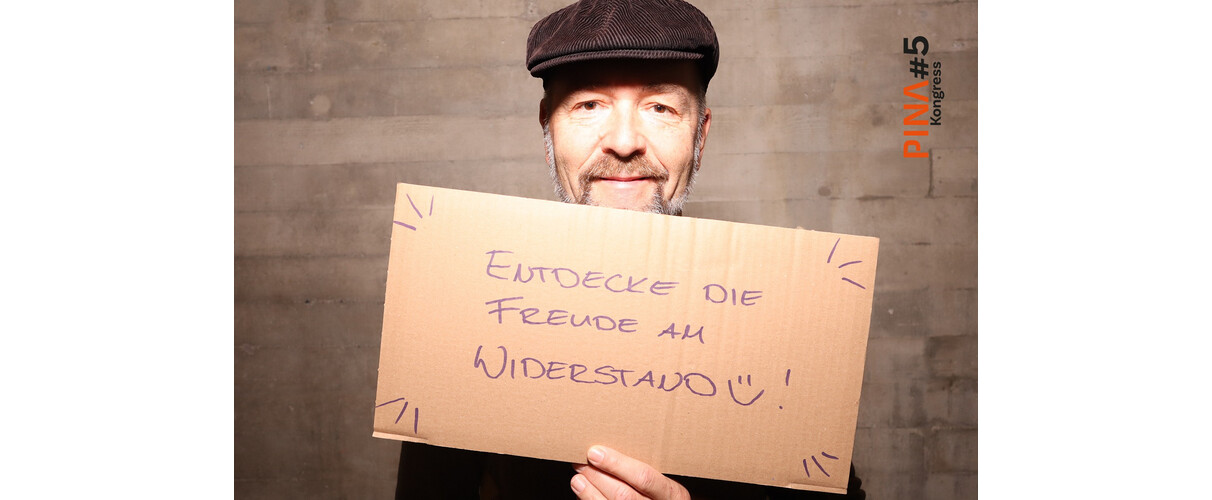 ENTDECKE DIE
FREUDE AM
WIDERSTAND !
PINA#5
Kongress